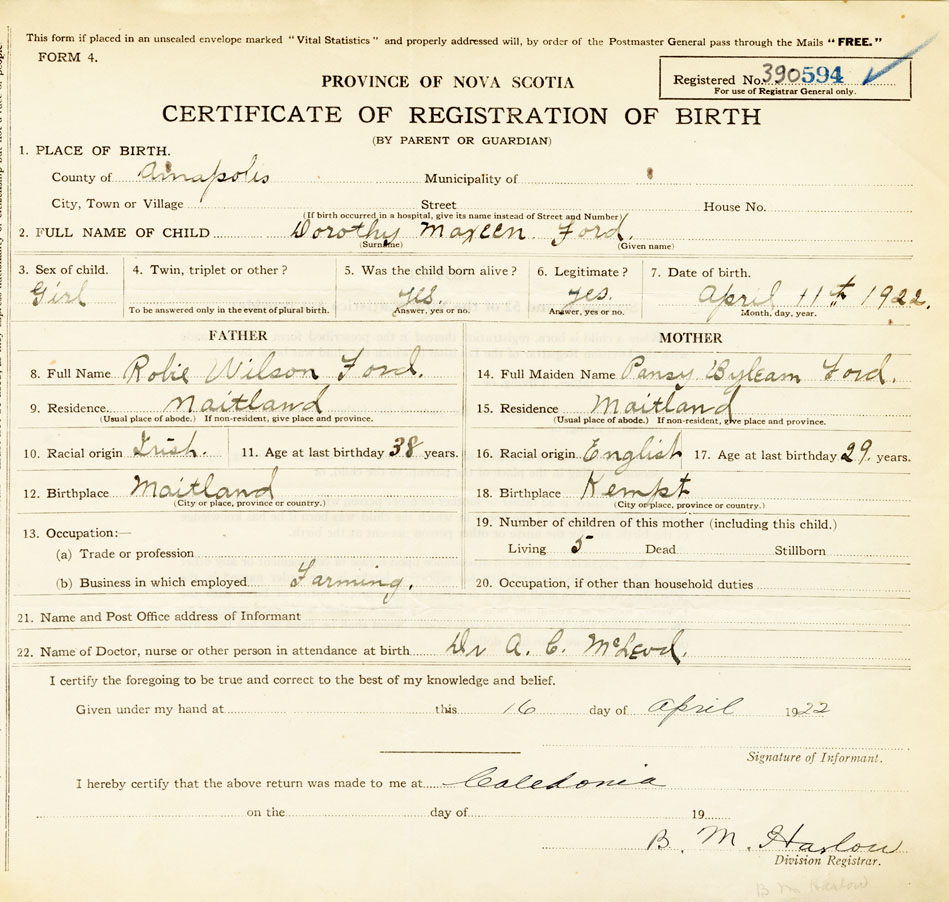 This form if placed in an unsealed envelope marked "Vital Statistics" and properly addressed will, by order of the Postmaster General pass through the Mails "FREE."
FORM 4.
Registered No. 390594
For use of Registrar General only.
PROVINCE OF NOVA SCOTIA
CERTIFICATE OF REGISTRATION OF BIRTH
(BY PARENT OR GUARDIAN)
1. PLACE OF BIRTH.
County of Annapolis Municipality of
City, Town or Village Street House No.
(If birth occurred in a hospital, give its name instead of Street and Number)
2. FULL NAME OF CHILD Dorothy Maxeen Ford.
(Surname) (Given name)
3. Sex of child. 4. Twin, triplet or other? 5. Was the child born alive? 6. Legitimate? 7. Date of birth.
Girl yes. yes. April 11th 1922.
To be answered only in the event of plural birth. Answer, yes or no. Answer, yes or no. Month, day, year.
FATHER MOTHER
8. Full Name Robie Wilson Ford. 14. Full Maiden Name Pansy Byleam Ford.
9. Residence. Maitland 15. Residence Maitland
(Usual place of abode.) If non-resident, give place and province. (Usual place of abode.) If non-resident, give place and province.
10. Racial origin Irish. 11. Age at last birthday 38 years. 16. Racial origin English 17. Age at last birthday 29. years.
12. Birthplace Maitland 18. Birthplace Kempt
(City or place, province or country.) (City or place, province or country.)
13. Occupation:— 19. Number of children of this mother (including this child.)
(a) Trade or profession Living 5 Dead Stillborn
(b) Business in which employed Farming. 20. Occupation, if other than household duties
21. Name and Post Office address of Informant
22. Name of Doctor, nurse or other person in attendance at birth Dr A. C. McLeod.
I certify the foregoing to be true and correct to the best of my knowledge and belief.
Given under my hand at this 16 day of April 1922
Signature of Informant.
I hereby certify that the above return was made to me at Caledonia
on the day of 19
B. M. Harlow
Division Registrar.
B M Harlow